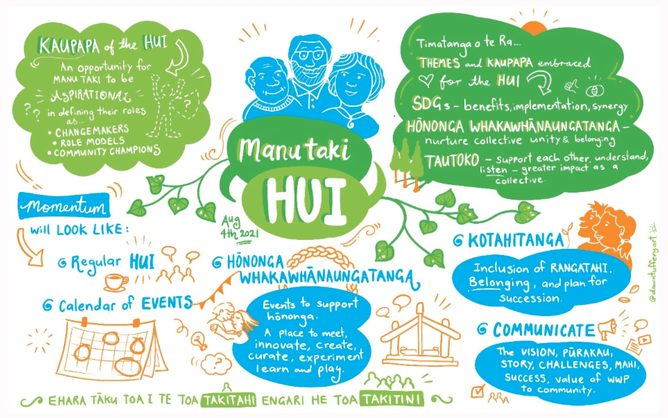 KAUPAPA of the HUI
An opportunity for
MANU TAKI to be
ASPIRATIONAL
in defining their roles
as -
• CHANGEMAKERS
• ROLE MODELS
• COMMUNITY CHAMPIONS
? ?
? ?
Manu taki
HUI
Aug
4th 2021
Timatanga o te Ra...
THEMES and KAUPAPA embraced
for the HUI
SDGs - benefits, implementation, synergy
HŌNONGA WHAKAWHĀNAUNGATANGA -
nurture collective unity & belonging
TAUTOKO - support each other, understand,
listen - greater impact as a
collective.
Momentum
will LOOK LIKE:
Regular HUI
Calendar of EVENTS
HŌNONGA
WHAKAWHĀNAUNGATANGA
Events to support
hōnonga.
A place to meet,
innovate, create,
curate, experiment
learn and play.
KOTAHITANGA
Inclusion of RANGATAHI.
Belonging, and plan for
succession.
COMMUNICATE
The VISION, PŪRAKAU,
STORY, CHALLENGES, MAHI,
SUCCESS, value of WWP
to community.
@dawntuffery.art
EHARA TĀKU TOA I TE TOA TAKITAHI ENGARI HE TOA TAKITINI